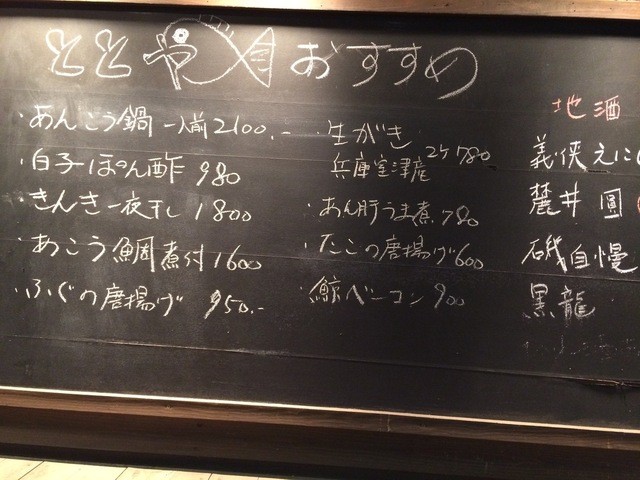 ととや おすすめ
・あんこう鍋 一人前 2100.-
・白子ぽん酢 980
・きんき一夜干し 1800
・あこう鯛煮付 1600
・ふぐの唐揚げ 950.-
・生がき
兵庫室津産 2ケ780
・あん肝うま煮 780
・たこの唐揚げ 600
・鯨ベーコン 900
地酒
義侠 えに
麓井 圓
磯自慢
黒龍